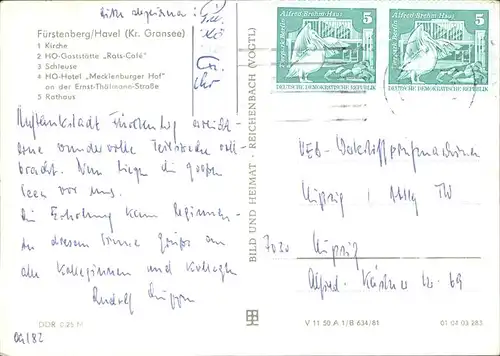 Bitte abgeben:
Fürstenberg/Havel (Kr. Gransee)
1 Kirche
2 HO-Gaststätte „Rats-Café"
3 Schleuse
4 HO-Hotel „Mecklenburger Hof"
an der Ernst-Thälmann-Straße
5 Rathaus
Fürstenberg erreicht –
eine wundervolle voll-
bracht. Nun liegen die großen
Seen vor uns.
Die Erholung kann beginnen –
In diesem Sinne Grüße an
alle Kolleginnen und Kollegen
Rudolf
DDR 0,25 M
09/82
BILD UND HEIMAT · REICHENBACH (VOGTL)
Alfred-Brehm-Haus
5
Tierpark Berlin
DEUTSCHE DEMOKRATISCHE REPUBLIK
Alfred-Brehm-Haus
5
Tierpark Berlin
DEUTSCHE DEMOKRATISCHE REPUBLIK
VEB Werkstoffprüfmaschinen
Leipzig / Abtlg TW
7030 Leipzig
Alfred-Kästner-Str. 69
V 11 50 A 1/B 634/81
01 04 03 283